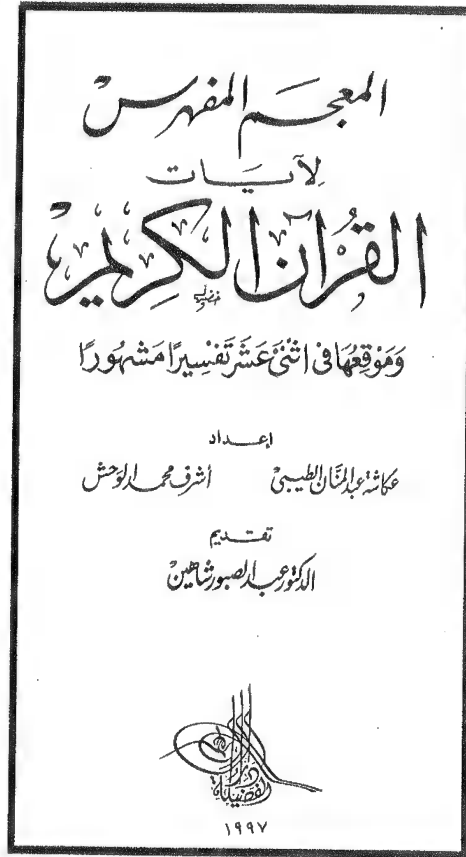 المعجم المفهرس
لآيات
القرآن الكريم
وَمَوْقِعُهَا فِى اثْنَىْ عَشَرَ تَفْسِيرًا مَشْهُورًا
إعداد
عكاشة عبد المنان الطيبى أشرف محمد الوحش
تقديم
الدكتور عبد الصبور شاهين
دار الفضيلة
١٩٩٧